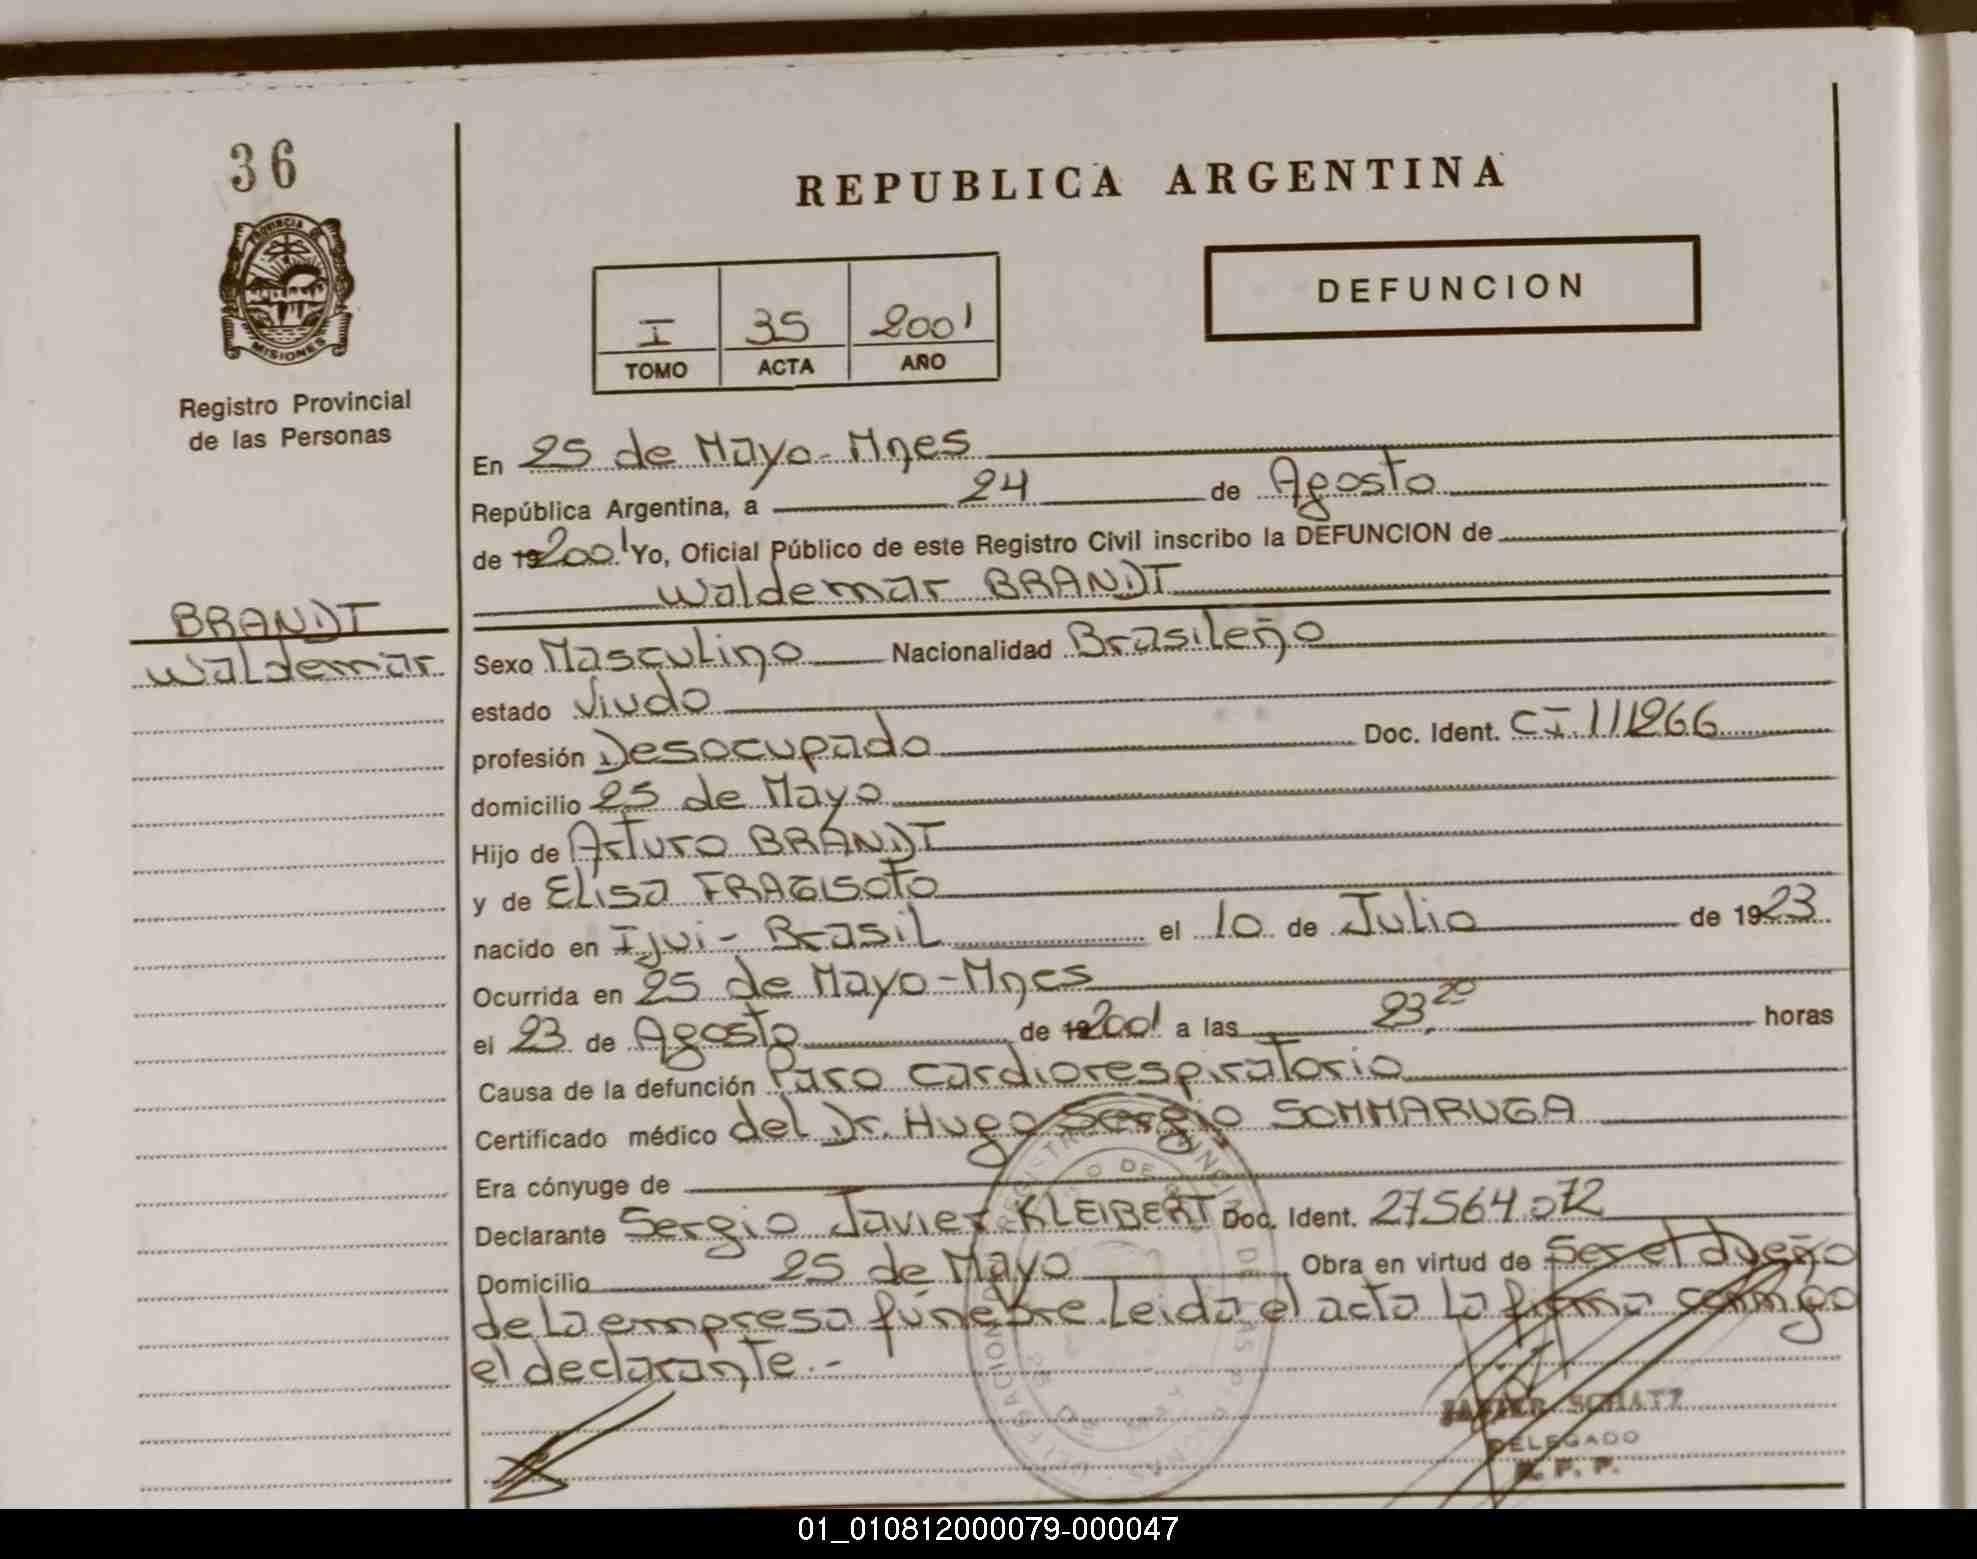 36
PROVINCIA DE
MISIONES
Registro Provincial
de las Personas
BRANDT
Waldemar
REPUBLICA ARGENTINA
I 35 2001
TOMO ACTA AÑO
DEFUNCION
En 25 de Mayo-Mnes
República Argentina, a 24 de Agosto
de 192001 Yo, Oficial Público de este Registro Civil inscribo la DEFUNCION de
Waldemar BRANDT
Sexo Masculino Nacionalidad Brasileño
estado Viudo
profesión Desocupado Doc. Ident. CI.111266
domicilio 25 de Mayo
Hijo de Arturo BRANDT
y de Elisa FRAGISOTO
nacido en Ijui- Brasil el 10 de Julio de 1923
Ocurrida en 25 de Mayo-Mnes
el 23 de Agosto de 192001 a las 23,20 horas
Causa de la defunción Paro cardiorespiratorio
Certificado médico del Dr. Hugo Sergio SOMMARUGA
Era cónyuge de
Declarante Sergio Javier KLEIBERT Doc. Ident. 27.564.072
Domicilio 25 de Mayo Obra en virtud de Ser el dueño
de la empresa fúnebre. Leida el acta la firma conmigo
el declarante.-
JAVIER SCHATZ
DELEGADO
R. P. P.
01_010812000079-000047